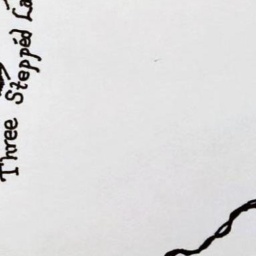 Three Stepped La